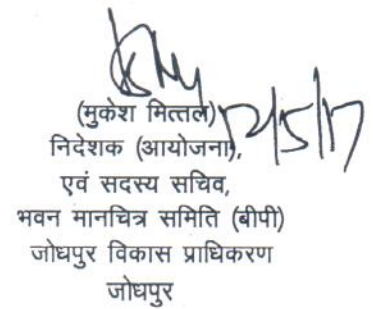 (मुकेश मित्तल)
निदेशक (आयोजना),
एवं सदस्य सचिव,
भवन मानचित्र समिति (बीपी)
जोधपुर विकास प्राधिकरण
जोधपुर